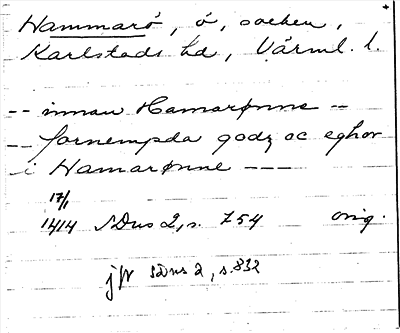 Hammarö, ö, socken,
Karlstads hd, Värml. l.
-- innan Hamarønne --
-- fornempda godz oc eghor
i Hamarønne ---
17/1
1414 SDns 2, s. 754 orig.
jfr SDns 2, s. 832